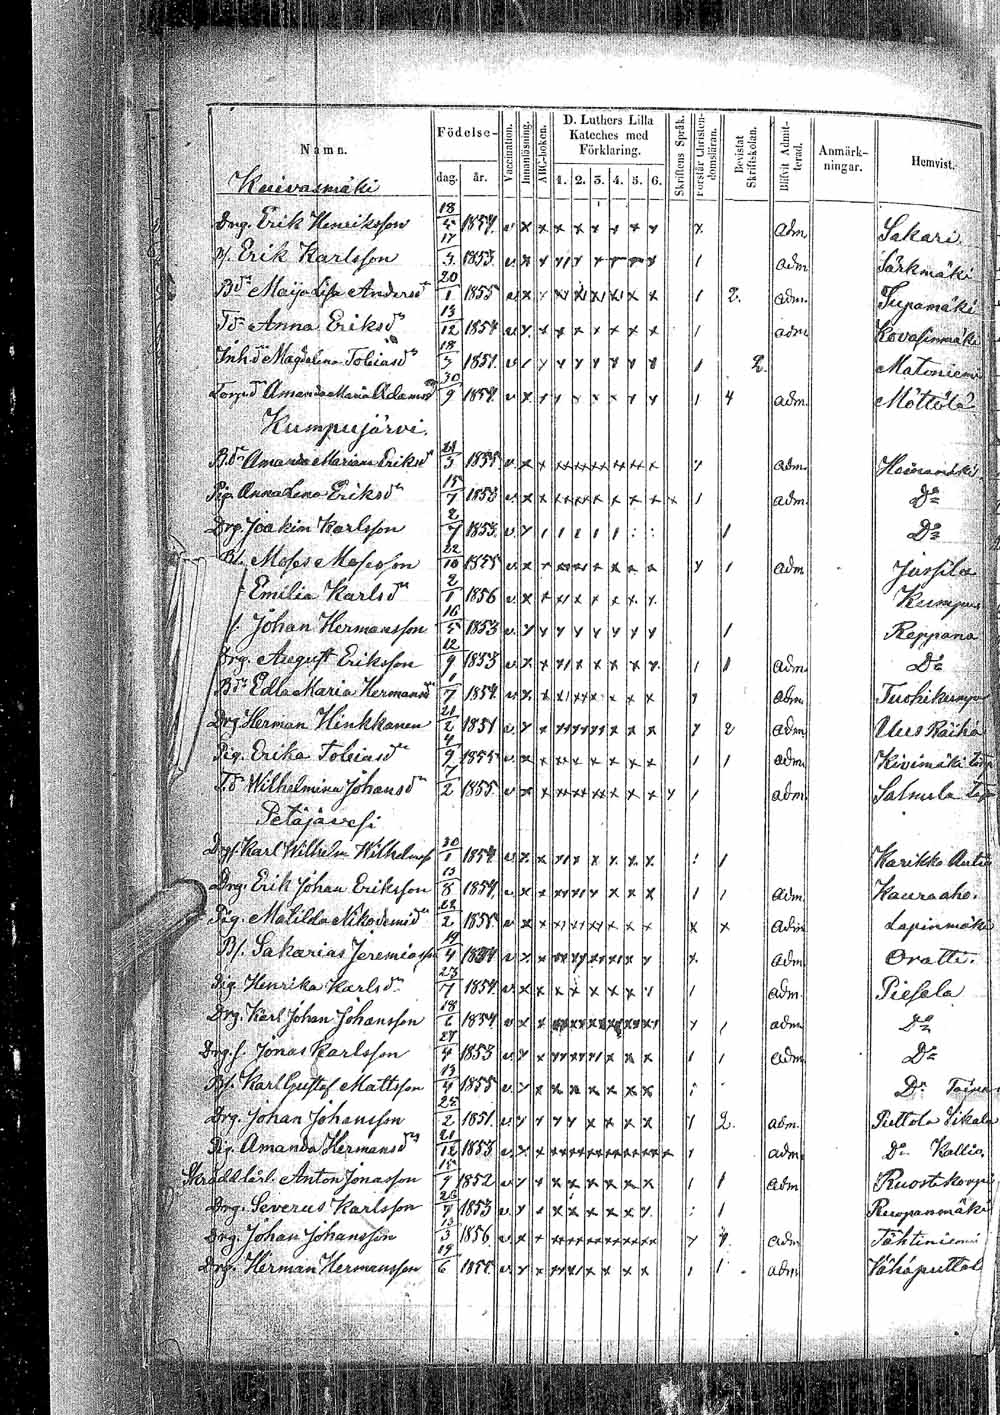 Namn. Födelse- dag. år. Vaccination. Innanläsning. ABC-boken. D. Luthers Lilla Kateches med Förklaring. 1. 2. 3. 4. 5. 6. Skriftens Språk. Förstår Christendomsläran. Bevistat Skriftskolan. Blifvit Admitterad. Anmärkningar. Hemvist.
Kuivasmäki
Drg. Erik Henriksson 18 1854. v adm Sakari
Erik Karlsson 17/3 1853. v adm Särkmäki
Bdr Maija Lisa Andersdr 20/1 1855 v 2. adm. Tupamäki
Tdr Anna Eriksdr 13/12 1854 v adm Kovasinmäki
Inhdr Magdalena Tobiasdr 18/3 1851. v 2. Matoniemi
Torpdr Amanda Maria Adamsdr 30/9 1854. v 4 adm. Möttölä
Kumpujärvi.
Bdr Amanda Mariana Eriksdr 21/3 1855 v. adm. Heinamäki
Pig. Anna Lena Eriksdr 15/7 1853 v adm. Do
Drg. Joakim Karlsson 2/7 1853. v Do
Bs. Moses Mosesson 22/10 1855 v adm. Jussila
Emilia Karlsdr 2/1 1856 v. Kumpu
Johan Hermansson 16/5 1853 v. Reppana
Drg. August Eriksson 12/9 1853 v adm. Do
Bdr Edla Maria Hermansdr 1/7 1854. v. adm. Tuohikumpu
Drg Herman Hinkkanen 21/2 1851 v 2 adm Uus Räihä
Pig. Erika Tobiasdr 4/9 1855 v adm. Kivimäki torp
T.dr Wilhelmina Johansdr 7/2 1855. v. adm. Salmela torp
Petäjävesi
Drgs. Karl Wilhelm Wilhelmss 30/1 1854 v Karikko Antti
Drg. Erik Johan Eriksson 13/8 1854. v adm. Kauraaho.
Pig. Matilda Nikodemidr 22/2 1855. v adm Lapinmäki
Bs. Sakarias Jeremiasson 19/4 1854 v adm. Oratti.
Pig Henrika Karlsdr 23/7 1854. v adm. Piesala
Drg. Karl Johan Johansson 18/6 1854 v adm Do
Drg.s. Jonas Karlsson 24/4 1853 v adm. Do
Bs. Karl Gustaf Mattsson 13/4 1855 v. Do
Drg. Johan Johansson 25/2 1851. v 2. adm. Puttola Sikala
Pig. Amanda Hermansdr 21/12 1853 v. adm. Do Kallio.
Skräddlärl. Anton Jonasson 15/9 1852 v adm Ruostekorpi
Drg. Severus Karlsson 26/7 1853 v Ruopanmäki
Drg. Johan Johansson 13/3 1856. v adm Tähtiniemi
Drg. Herman Hermansson 19/6 1855. v adm Vähäputtola